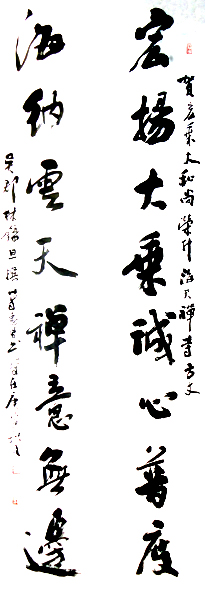 宏揚大乗誠心普度
賀宏乗大和尚榮升海天禪寺方丈
海納雲天禪意無邊
吳郡林錫旦撰